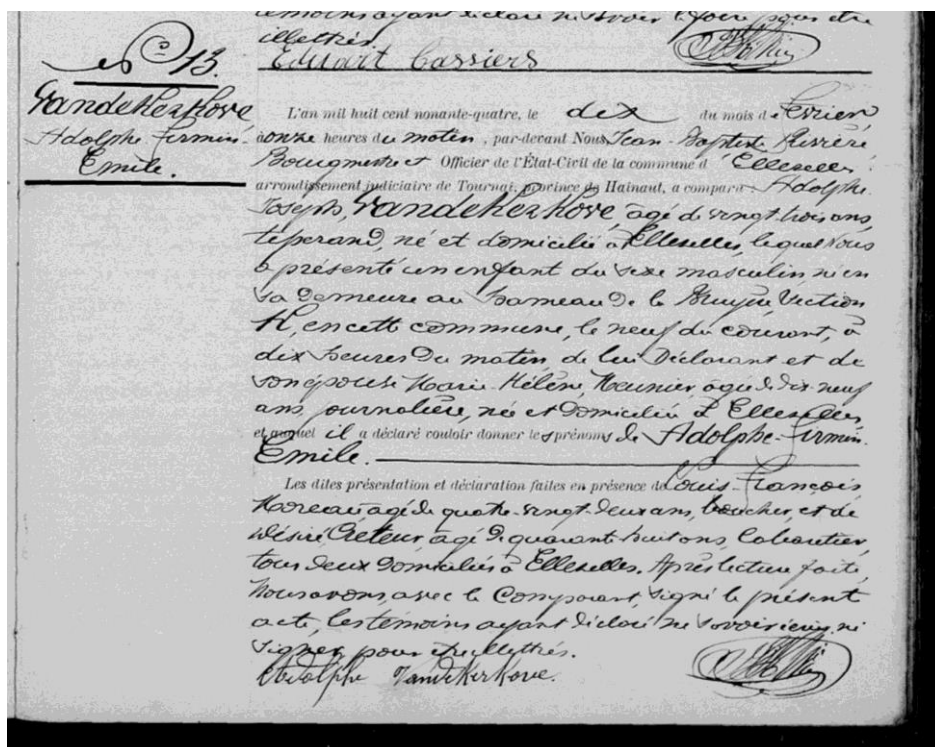 témoins ayant déclaré ne savoir le faire pour être
illettrés.
Edouart Cassiers
N° 13.
Vandekerkove
Adolphe-Firmin-
Emile.
L'an mil huit cent nonante-quatre, le dix du mois de Février
à onze heures du matin, par-devant Nous Jean-Baptiste
Bourgmestre et Officier de l'État-Civil de la commune d'Ellezelles
arrondissement judiciaire de Tournai, province de Hainaut, a comparu: Adolphe
Joseph, Vandekerkove, âgé de vingt-trois ans,
tisserand, né et domicilié à Ellezelles, lequel Nous
a présenté un enfant du sexe masculin né en
sa demeure au hameau de la Bruyère section
K, en cette commune, le neuf du courant, à
dix heures du matin, de lui Déclarant et de
son épouse Marie-Hélène Meunier, âgée de dix-neuf
ans, journalière, née et domiciliée à Ellezelles,
et auquel il a déclaré vouloir donner les prénoms de Adolphe-Firmin-
Emile.
Les dites présentation et déclaration faites en présence de Louis-François
Moreau âgé de quatre-vingt-deux ans, boucher, et de
Désiré Creteur, âgé de quarante-huit ans, cabaretier,
tous deux domiciliés à Ellezelles. Après lecture faite,
Nous avons, avec le Comparant, signé le présent
acte, les témoins ayant déclaré ne savoir écrire ni
signer pour être illettrés.
Adolphe Vandekerkove.